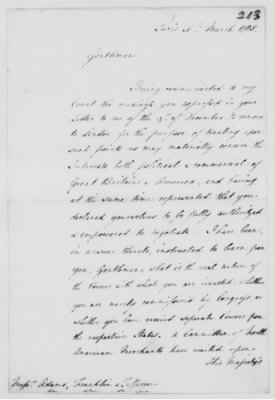 203
Paris March 1785
Gentlemen
Having communicated to my
Court the readiness you expressed in your
Letter to me of the 9th of December to remove
to London for the purpose of treating upon
such points as may materially concern the
Interests both political & commercial of
Great Britain & America, and having
at the same time represented that you
declared yourselves to be fully authorized
& empowered to negotiate. I have been,
in answer thereto, instructed to learn from
you, Gentlemen, what is the real nature of
the Powers with which you are invested, whether
you are merely commissioned by Congress or
whether you have received separate Powers from
the respective States. A Committee of North
American Merchants have waited upon
His Majesty's
Messrs. Adams, Franklin & Jefferson